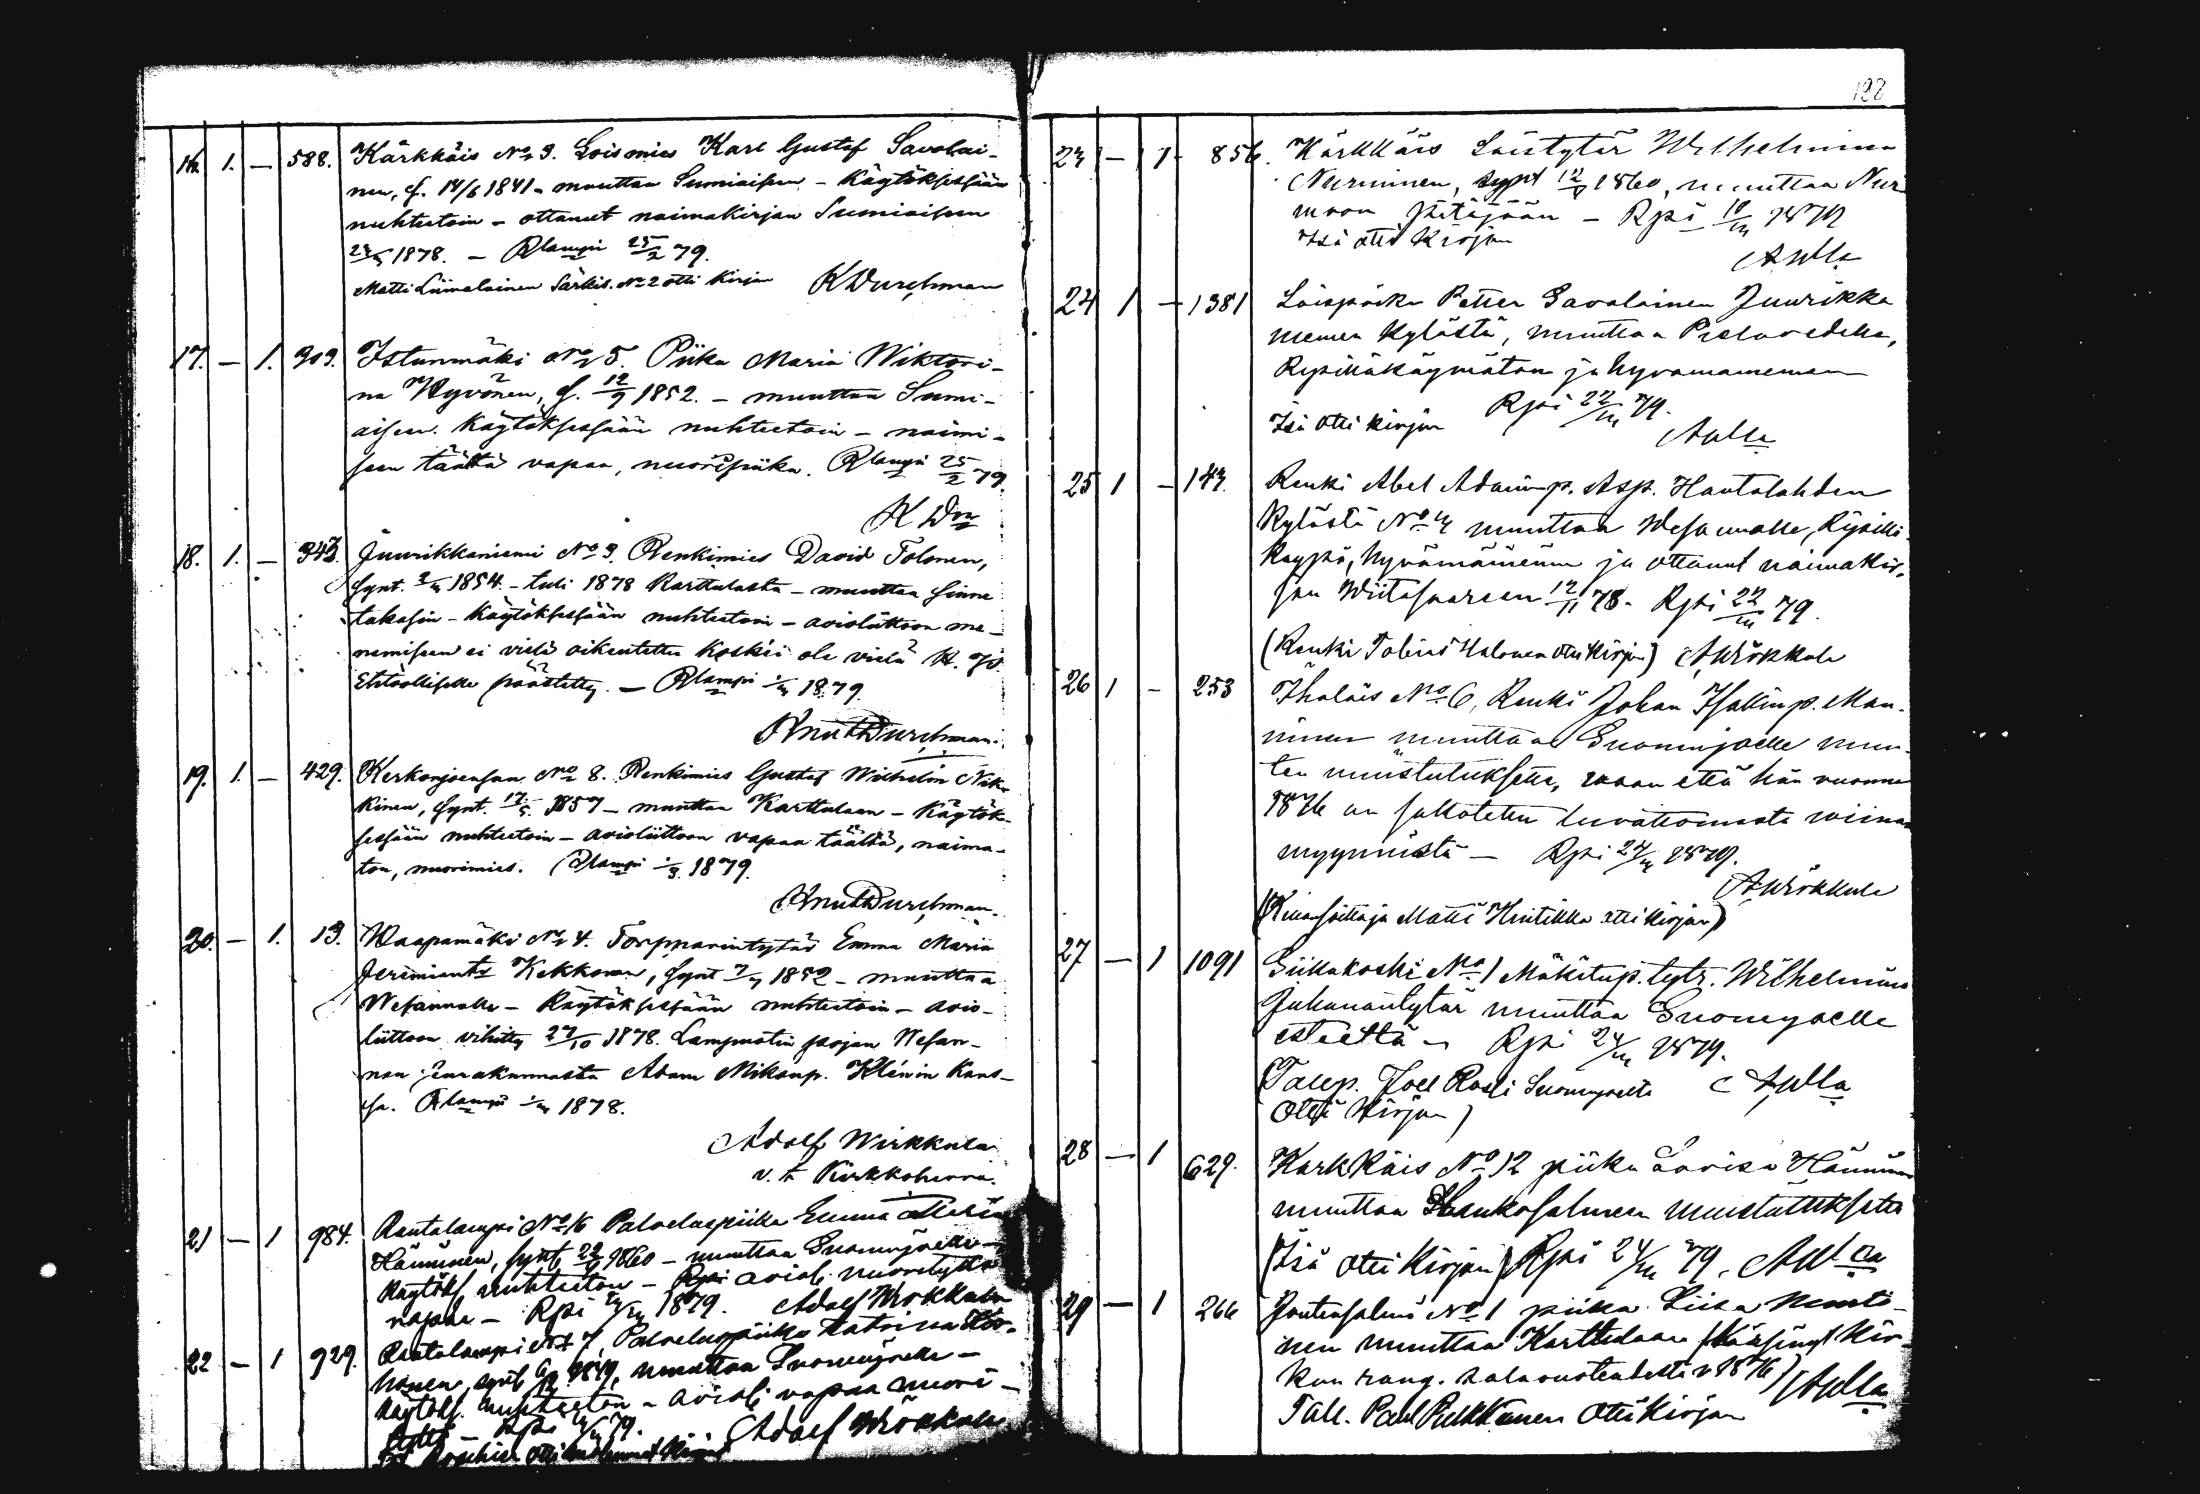 16. 1. — 588. Kärkkäis No 9. Loismies Karl Gustaf Savolai-
nen, s. 14/6 1841 - muuttaa Sumiaisiin - Käytöksessään
nuhteetoin - ottanut naimakirjan Sumiaiseen
1878. — Rlampi 25/2 79.
Matti Liimalainen Särkis. No 2 otti kirjan K Durchman
17. — 1. 909. Istunmäki No 5. Piika Maria Wiktori-
na Hyvönen, s. 12/9 1852. - muuttaa Sumi-
aiseen. Käytöksessään nuhteetoin - naimi-
seen täältä vapaa, nuoripiika. Rlampi 25/2 79.
K Dn
18. 1. — 343. Juurikkaniemi No 9. Renkimies David Tolonen,
synt. 1854. - tuli 1878 Karttulasta - muuttaa sinne
takasin - Käytöksessään nuhteetoin - avioliittoon me-
nemiseen ei vielä oikeutettu koska ei ole vielä H. P.
Ehtoolliselle päästetty. — Rlampi 1879.
Knut Durchman.
19. 1. — 429. Kerkonjoensuu No 8. Renkimies Gustaf Wilhelm Nik-
kinen, synt. 1857 - muuttaa Karttulaan - Käytök-
sessään nuhteetoin - avioliittoon vapaa täältä, naima-
ton, nuorimies. Rlampi 1879.
Knut Durchman.
20. — 1. 13. Waapamäki No 4. Torpparintytär Emma Maria
Jeremiantr Kekkonen, synt 1852 - muuttaa
Wesannolle - Käytöksessään nuhteetoin - avio-
liittoon vihitty 27/10 1878. Lampuotin pojan Wesan-
non seurakunnasta Adam Mikonp. Klénin kans-
sa. Rlampi 1878.
Adolf Wirkkula
v. t. Kirkkoherra.
21 — 1 984. Rautalampi No 16 Palveluspiika Emma Maria
Hänninen, synt 1860 - muuttaa Suonenjoelle -
Käytöks. nuhteeton - aviol. nuorityttö
vapaa - Rpi 1879. Adolf Wirkkula
22 — 1 929. Rautalampi No 7, Palveluspiika Katrina Kor-
honen, synt 1849, muuttaa Suonenjoelle -
Käytöks. nuhteeton - aviol. vapaa nuori-
Rpi 79. Adolf Wirkkula
otti kirjan
128
23 — 1 - 856. Kärkkäis Loistytär Wilhelmina
Nurminen, synt 12 1860, muuttaa Nur
moon pitäjään - Rpi 10/III 1879
Isä otti kirjan
AWlla
24 1 — 1381 Loispoika Petter Savolainen Juurikka
niemen kylästä, muuttaa Pielavedelle,
Ripilläkäymätön ja hyvämaineinen
Rpi 22/III 79.
Isä otti kirjan
AWlla
25 1 — 143. Renki Abel Adaminp. Asp. Hautolahden
kylästä No 4 muuttaa Wesannolle, Ripillä
käypä, hyvämaineinen ja ottanut naimakir-
jan Wiitasaareen 12/11 78. Rpi 22/III 79.
(Renki Tobias Halonen otti kirjan) AWirkkula
26 1 — 253 Ihalais No 6, Renki Johan Isakinp. Man-
ninen muuttaa Suonenjoelle muu-
ten muistutuksetta, vaan että hän vuonna
1876 on sakotettu luvattomasta viinan
myynnistä — Rpi 24/III 1879.
AWirkkula
(Kivansoittaja Matti Hintikka otti kirjan)
27 — 1 1091 Siikakoski No 1 Mökitup. tytr. Wilhelmina
Juhanantytär muuttaa Suonenjoelle
esteettä - Rpi 24/III 1879.
(Talep. Joel Rossi Suonenjoelta AWlla
Otti Kirjan)
28 — 1 629. Kärkkäis No 12 piika Lovisa Hänninen
muuttaa Hankasalmeen muistutuksetta
(Isä otti kirjan) Rpi 24/III 79. AWla
29 — 1 266 Joutensalmi No 1 piika Liisa Kauti-
nen muuttaa Karttulaan (kärsinyt kir-
kon rang. salavuoteudesta v 1876) AWlla
Tall. Paul Pulkkanen otti kirjan